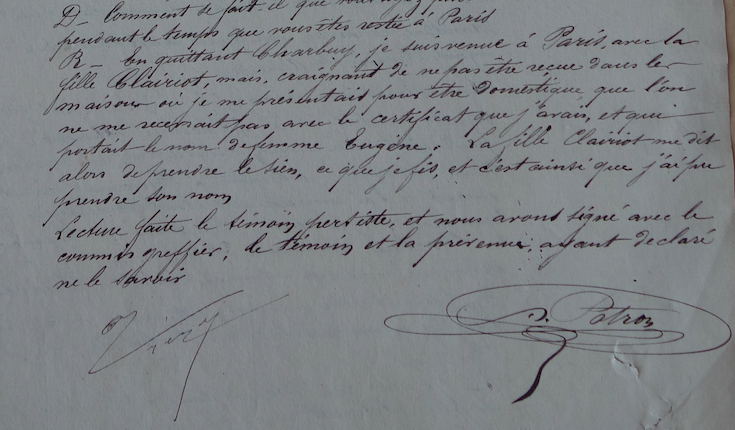 D_ Comment se fait-il que vous
pendant le temps que vous êtes restée à Paris
R_ En quittant Charbuy, je suis revenue à Paris, avec la
fille Clairiot, mais, craignant de ne pas être reçue dans les
maisons où je me présentais pour être domestique que l'on
ne me recevrait pas avec le certificat que j'avais, et qui
portait le nom de femme Eugène. La fille Clairiot me dit
alors de prendre le sien, ce que je fis, et c'est ainsi que j'ai pu
prendre son nom
Lecture faite le témoin persiste, et nous avons signé avec le
commis greffier, le témoin et la prévenue, ayant déclaré
ne le savoir
Patron